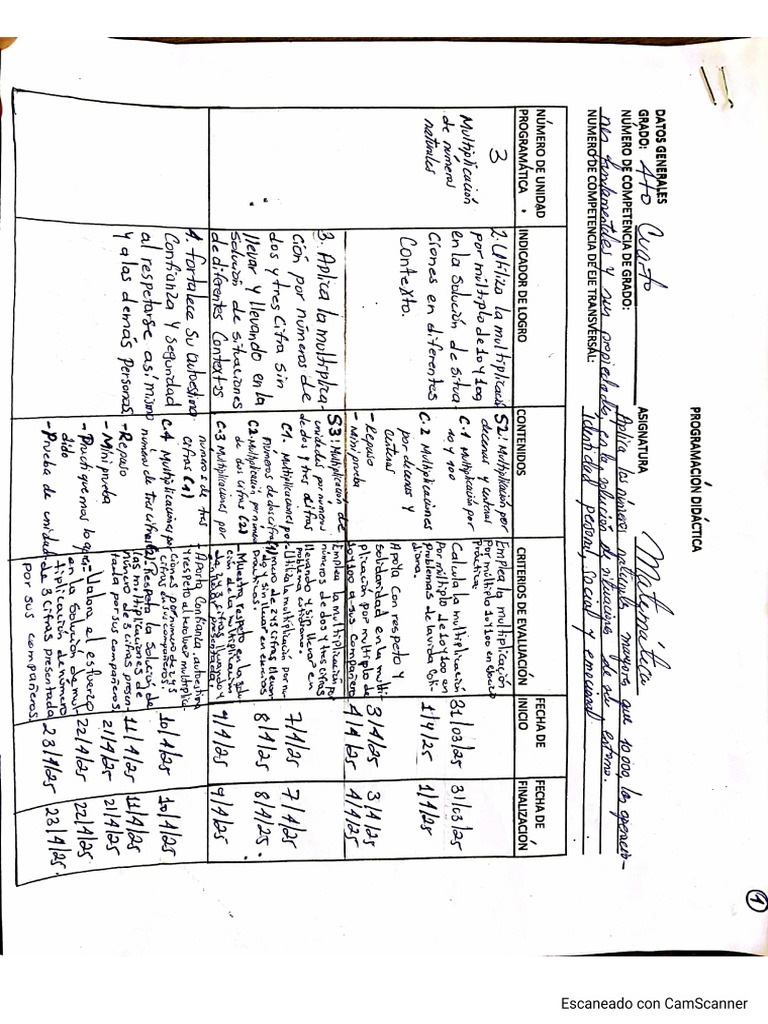 1
PROGRAMACIÓN DIDÁCTICA
DATOS GENERALES
GRADO: 4to Cuarto
ASIGNATURA Matemática
NÚMERO DE COMPETENCIA DE GRADO: Aplica los números naturales mayores que 10000, las operacio-
nes fundamentales y sus propiedades, en la solución de situaciones de su entorno.
NÚMERO DE COMPETENCIA DE EJE TRANSVERSAL: Identidad personal, social y emocional
NÚMERO DE UNIDAD PROGRAMÁTICA
INDICADOR DE LOGRO
CONTENIDOS
CRITERIOS DE EVALUACIÓN
FECHA DE INICIO
FECHA DE FINALIZACIÓN
3
Multiplicación
de números
naturales
2. Utilizo la multiplicació
por múltiplo de 10 y 100
en la solución de situa-
ciones en diferentes
Contexto.
S2: Multiplicación por
decenas y centenas
C.1 Multiplicación por
10 y 100
C.2 Multiplicaciones
por decenas y
centenas
- Repaso
- Mini prueba
Emplea la multiplicación
por múltiplo 10 y 100
Práctica.
Calcula la multiplicación
Por múltiplo de 10 y 100 en
problemas de la vida coti-
diana.
Apota Con respeto y
solidaridad en la multi-
plicación por múltiplo de
10 y 100 a sus compañero
31/03/25
1/4/25
3/4/25
4/4/25
31/03/25
1/4/25
3/4/25
4/4/25
3. Aplica la multiplica-
ción por números de
dos y tres Cifra sin
llevar y llevando en la
Solución de situaciones
de diferentes Contextos
S3: Multiplicación de
unidades por números
de dos y tres cifras
C1. Multiplicaciones por
números de dos cifras (1)
C2. Multiplicación por números
de dos cifras (2)
C.3 Multiplicaciones por
números de tres
cifras (1)
Emplea la multiplicación por
números de dos y tres cifras
llevando y sin llevar en
problema cotidiano.
- Utiliza la multiplicación por nu-
mero de 2 y 3 cifras llevan-
do y sin llevar
- Muestra respeto en la solu-
ción de la multiplicación
7/4/25
8/4/25
9/4/25
7/4/25
8/4/25.
9/4/25
4. fortalece su autoestima
Confianza y seguridad
al respetarse así mismo
y a las demás personas
C4 Multiplicaciones por
número de tres cifras (2)
- Repaso
- Mini prueba
- Practiquemos lo apren-
dido
- Prueba de unidad
- Aporta Confianza, autoestima
y respeto al resolver multiplica-
ciones por numero de 2 y 3
cifras en sus compañeros.
Respeta la Solución de
las multiplicaciones por
número de 3 cifras presen-
tada por sus compañeros
- Valora el esfuerzo
en la Solución de mul-
tiplicación de número
de 3 cifras presentada
por sus compañeros.
10/4/25
11/4/25
21/4/25
22/4/25
23/4/25
10/4/25
11/4/25
21/4/25
22/4/25
23/4/25.
Escaneado con CamScanner